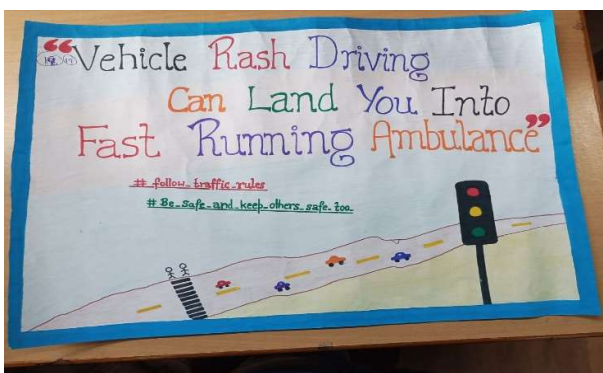 “Vehicle Rash Driving
Can Land You Into
Fast Running Ambulance”
# follow_traffic_rules
# Be_safe_and_keep_others_safe_too